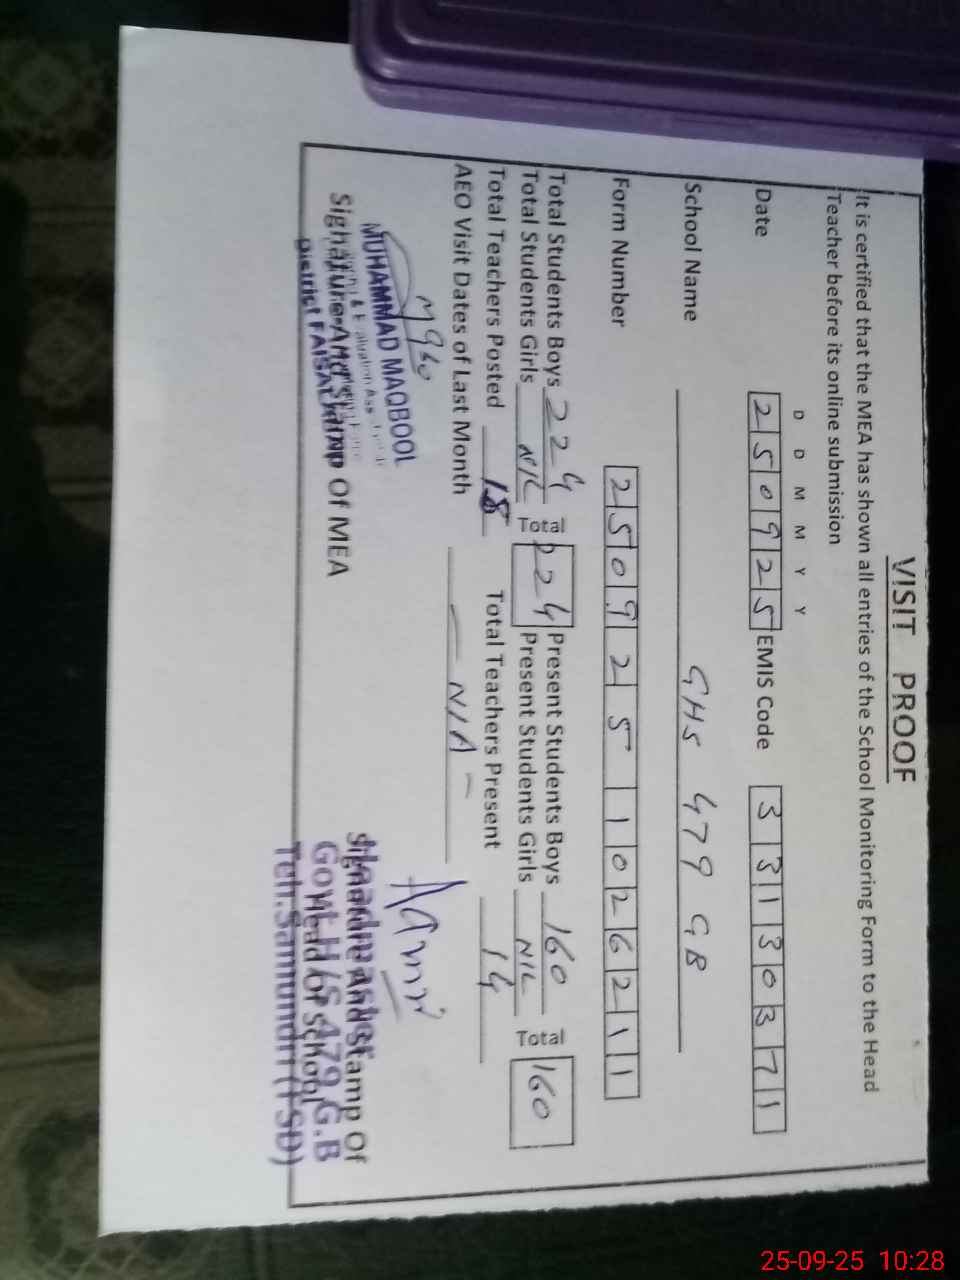 VISIT PROOF
It is certified that the MEA has shown all entries of the School Monitoring Form to the Head
Teacher before its online submission
D D M M Y Y
Date 250925 EMIS Code 33130371
School Name GHS 479 GB
Form Number 2509251026211
Total Students Boys 224 Total 224 Present Students Boys 160 Total 160
Total Students Girls NIL Present Students Girls NIL
Total Teachers Posted 18 Total Teachers Present 14
AEO Visit Dates of Last Month — N/A —
MUHAMMAD MAQBOOL
District FAISALABAD
Signature And Stamp Of MEA
Signature And Stamp Of
Head Of School
Headmaster
Govt. H/S 479 G.B
Teh: Samundri (FSD)
25-09-25 10:28